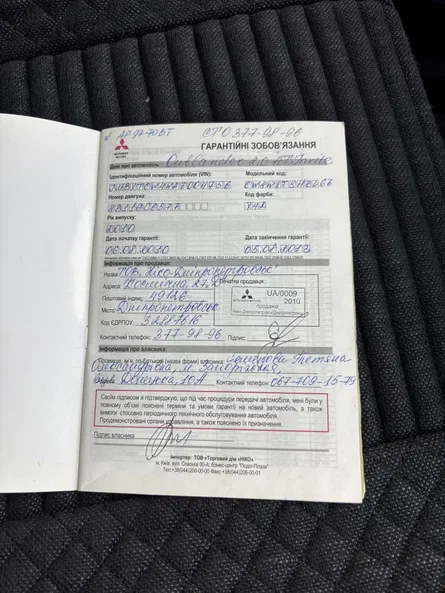 АР 97-70 ВТ СТО 377-98-96
MITSUBISHI MOTORS
ГАРАНТІЙНІ ЗОБОВ'ЯЗАННЯ
Дані про автомобіль: Outlander 2.0
Ідентифікаційний номер автомобіля (VIN): Модельний код:
Номер двигуна: Код фарби:
Рік випуску:
2010
Дата початку гарантії: Дата закінчення гарантії:
06.08.2010 05.08.2013
Інформація про продавця:
Назва ТОВ "Ніко-Дніпропетровськ" Печатка продавця:
Адреса: Космічна, 27,
UA/0009
2010
продажа
Поштовий індекс: 49126
Місто Дніпропетровськ
Код ЄДРПОУ:
Контактний телефон: 377-98-96 Підпис
Інформація про власника:
Прізвище, ім'я, по-батькові (назва фірми) власника: Тетяна
м. Запоріжжя,
10А Контактний телефон 067-709-15-79
Своїм підписом я підтверджую, що під час процедури передачі автомобіля, мені були у
повному об'ємі пояснені терміни та умови гарантії на новий автомобіль, а також
вимоги стосовно періодичного технічного обслуговування автомобіля.
Продемонстровані органи управління, а також пояснено їх призначення.
Підпис власника
Імпортер: ТОВ «Торговий дім «НІКО»
м. Київ, вул. Спаська 30-А, бізнес-центр "Поділ-Плаза"
Тел.+38(044)206-00-00 Факс +38(044)206-00-01